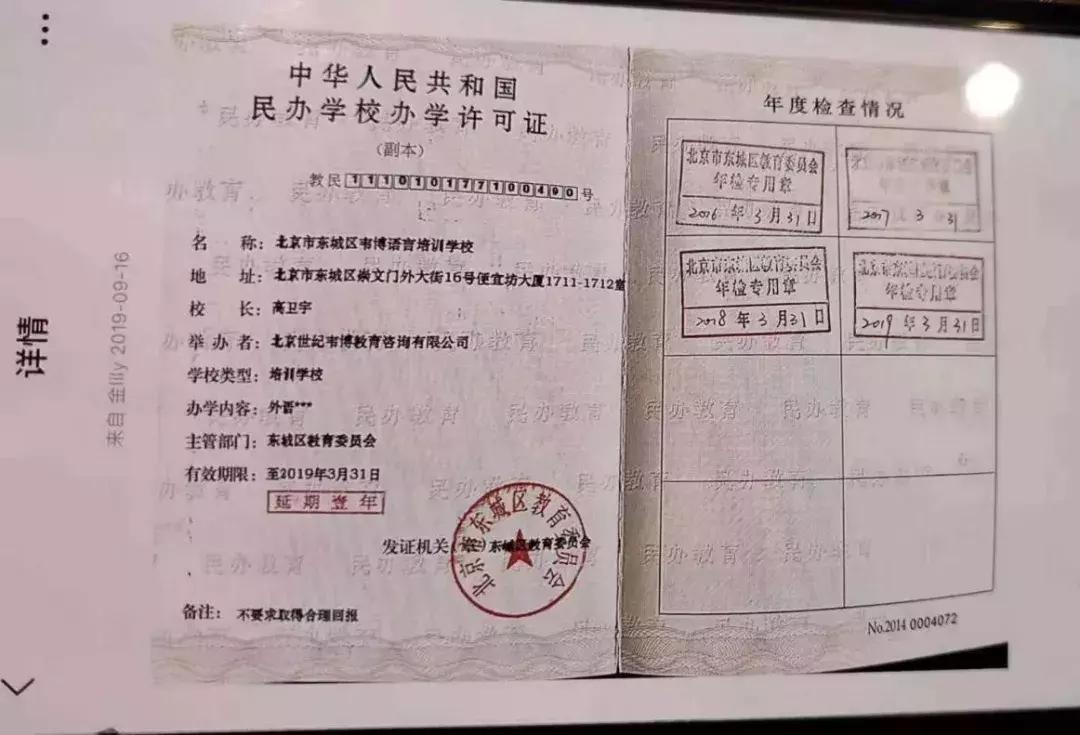 详情
来自 金lily 2019-09-16
中华人民共和国
民办学校办学许可证
(副本)
教民111010177100490号
名 称：北京市东城区韦博语言培训学校
地 址：北京市东城区崇文门外大街16号便宜坊大厦1711-1712室
校 长：高卫宇
举 办 者：北京世纪韦博教育咨询有限公司
学校类型：培训学校
办学内容：外语***
主管部门：东城区教育委员会
有效期限：至2019年3月31日
延期壹年
发证机关： 东城区教育委员会
北京市东城区教育委员会
备注：不要求取得合理回报
年度检查情况
北京市东城区教育委员会
年检专用章
2016年3月31日
2017 3 31
北京市东城区教育委员会
年检专用章
2018年3月31日
北京市东城区教育委员会
年检专用章
2019年3月31日
No.2014 0004072
民办教育